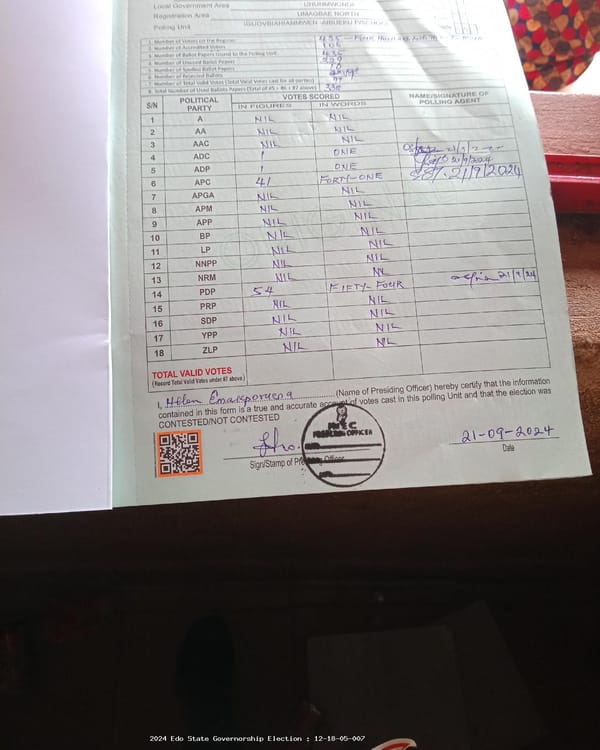 Local Government Area UHUNMWONDE
Registration Area UMAGBAE NORTH
Polling Unit
1. Number of Voters on the Register 435
2. Number of Accredited Voters 106
3. Number of Ballot Papers Issued to the Polling Unit 435
4. Number of Unused Ballot Papers
5. Number of Spoiled Ballot Papers
6. Number of Rejected Ballots
7. Number of Total Valid Votes (Total Valid Votes cast for all parties) 97
8. Total Number of Used Ballot Papers (Total of #5 + #6 + #7 above)
S/N POLITICAL PARTY VOTES SCORED NAME/SIGNATURE OF POLLING AGENT
IN FIGURES IN WORDS
1 A NIL NIL
2 AA NIL NIL
3 AAC NIL NIL
4 ADC 1 ONE 21/9/2024
5 ADP 1 ONE 21/9/2024
6 APC 41 FORTY-ONE 21/9/2024
7 APGA NIL NIL
8 APM NIL NIL
9 APP NIL NIL
10 BP NIL NIL
11 LP NIL NIL
12 NNPP NIL NIL
13 NRM NIL NIL
14 PDP 54 FIFTY-FOUR 21/9/24
15 PRP NIL NIL
16 SDP NIL NIL
17 YPP NIL NIL
18 ZLP NIL NIL
TOTAL VALID VOTES
(Record Total Valid Votes under #7 above)
I, Helen (Name of Presiding Officer) hereby certify that the information
contained in this form is a true and accurate account of votes cast in this polling Unit and that the election was
CONTESTED/NOT CONTESTED
INEC
PRESIDING OFFICER
21-09-2024
Sign/Stamp of Presiding Officer Date
2024 Edo State Governorship Election : 12-18-05-007